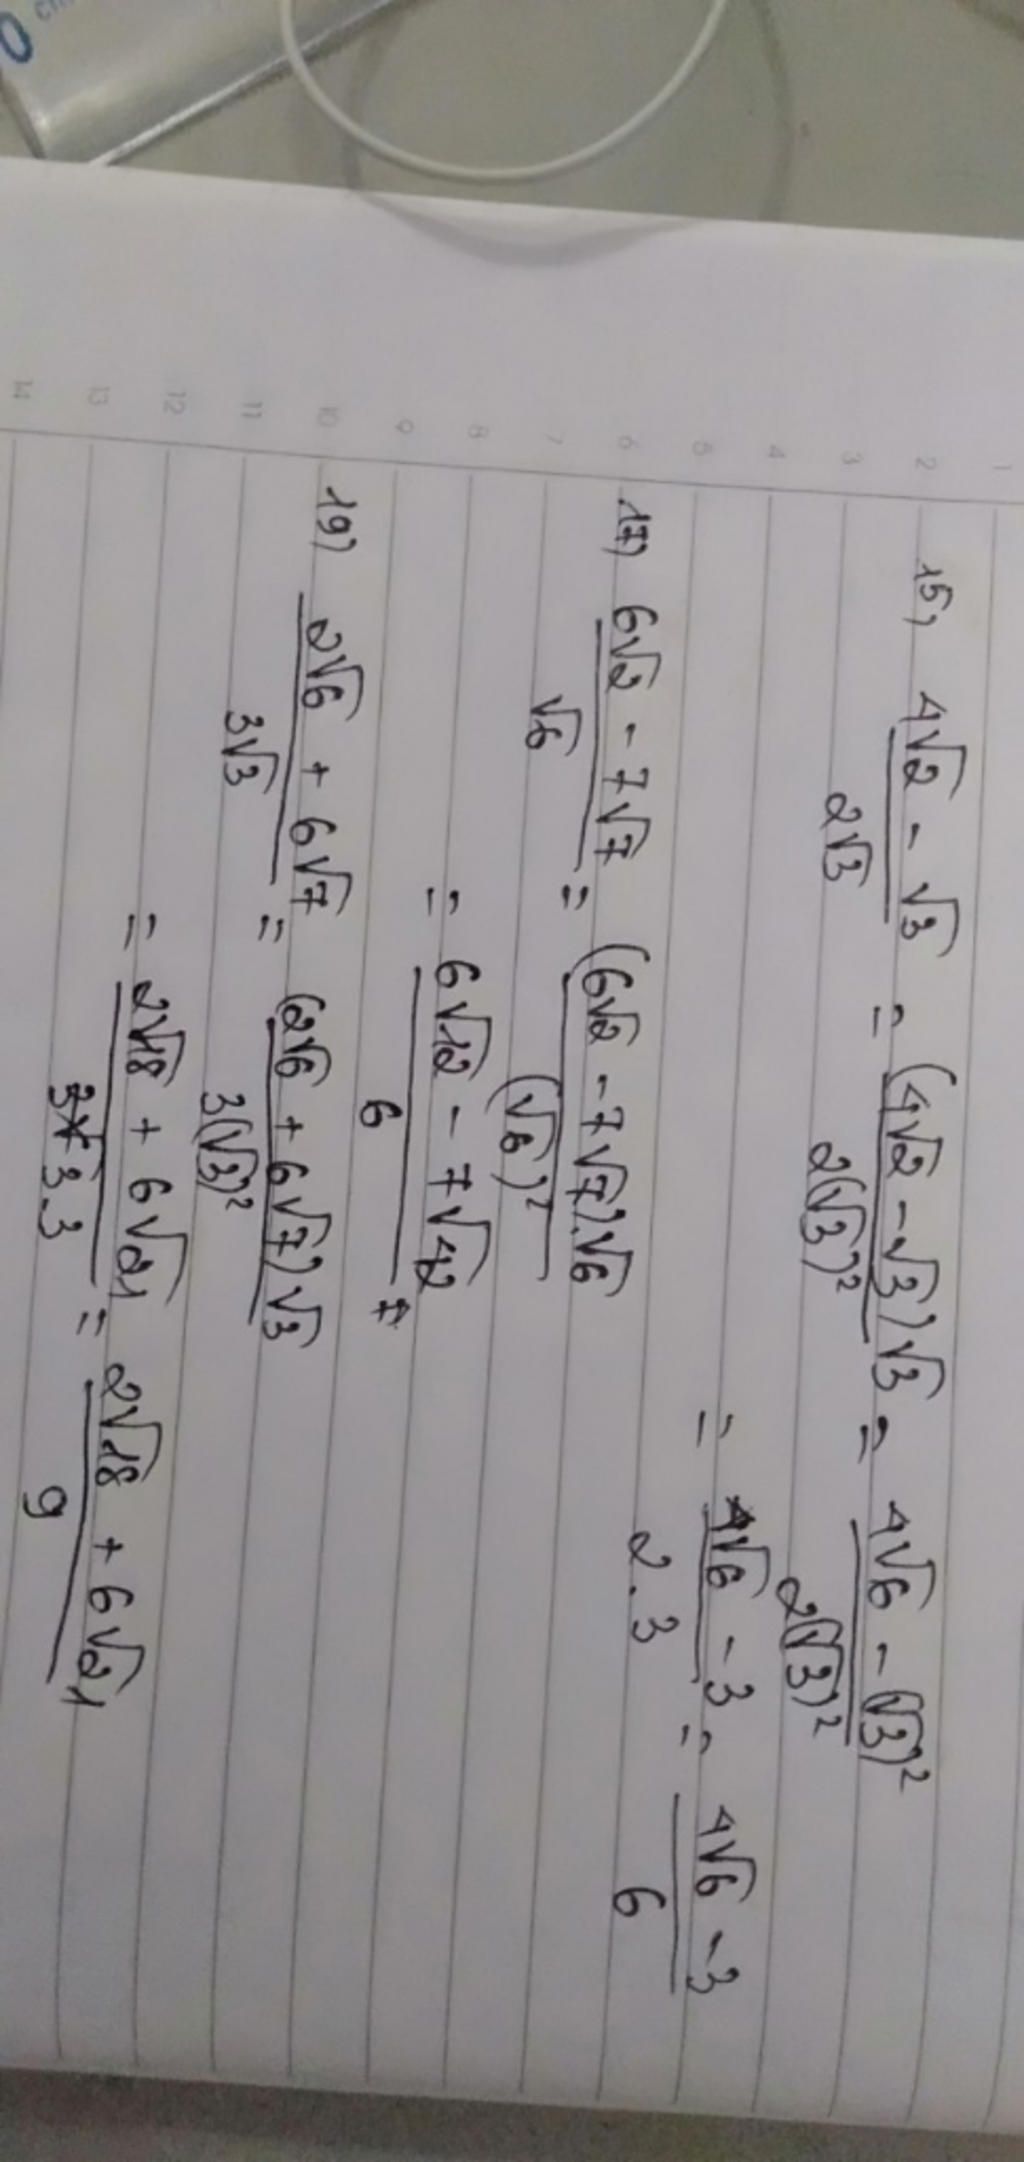 15) (4√2 - √3)/(2√3) = ((4√2 - √3)√3)/(2(√3)²) = (4√6 - (√3)²)/(2(√3)²)
= (4√6 - 3)/(2.3) = (4√6 - 3)/6
17) (6√2 - 7√7)/√6 = ((6√2 - 7√7).√6)/(√6)²
= (6√12 - 7√42)/6
19) (2√6 + 6√7)/(3√3) = ((2√6 + 6√7)√3)/(3(√3)²)
= (2√18 + 6√21)/(3.3) = (2√18 + 6√21)/9
1
2
3
4
5
6
7
8
9
10
11
12
13
14